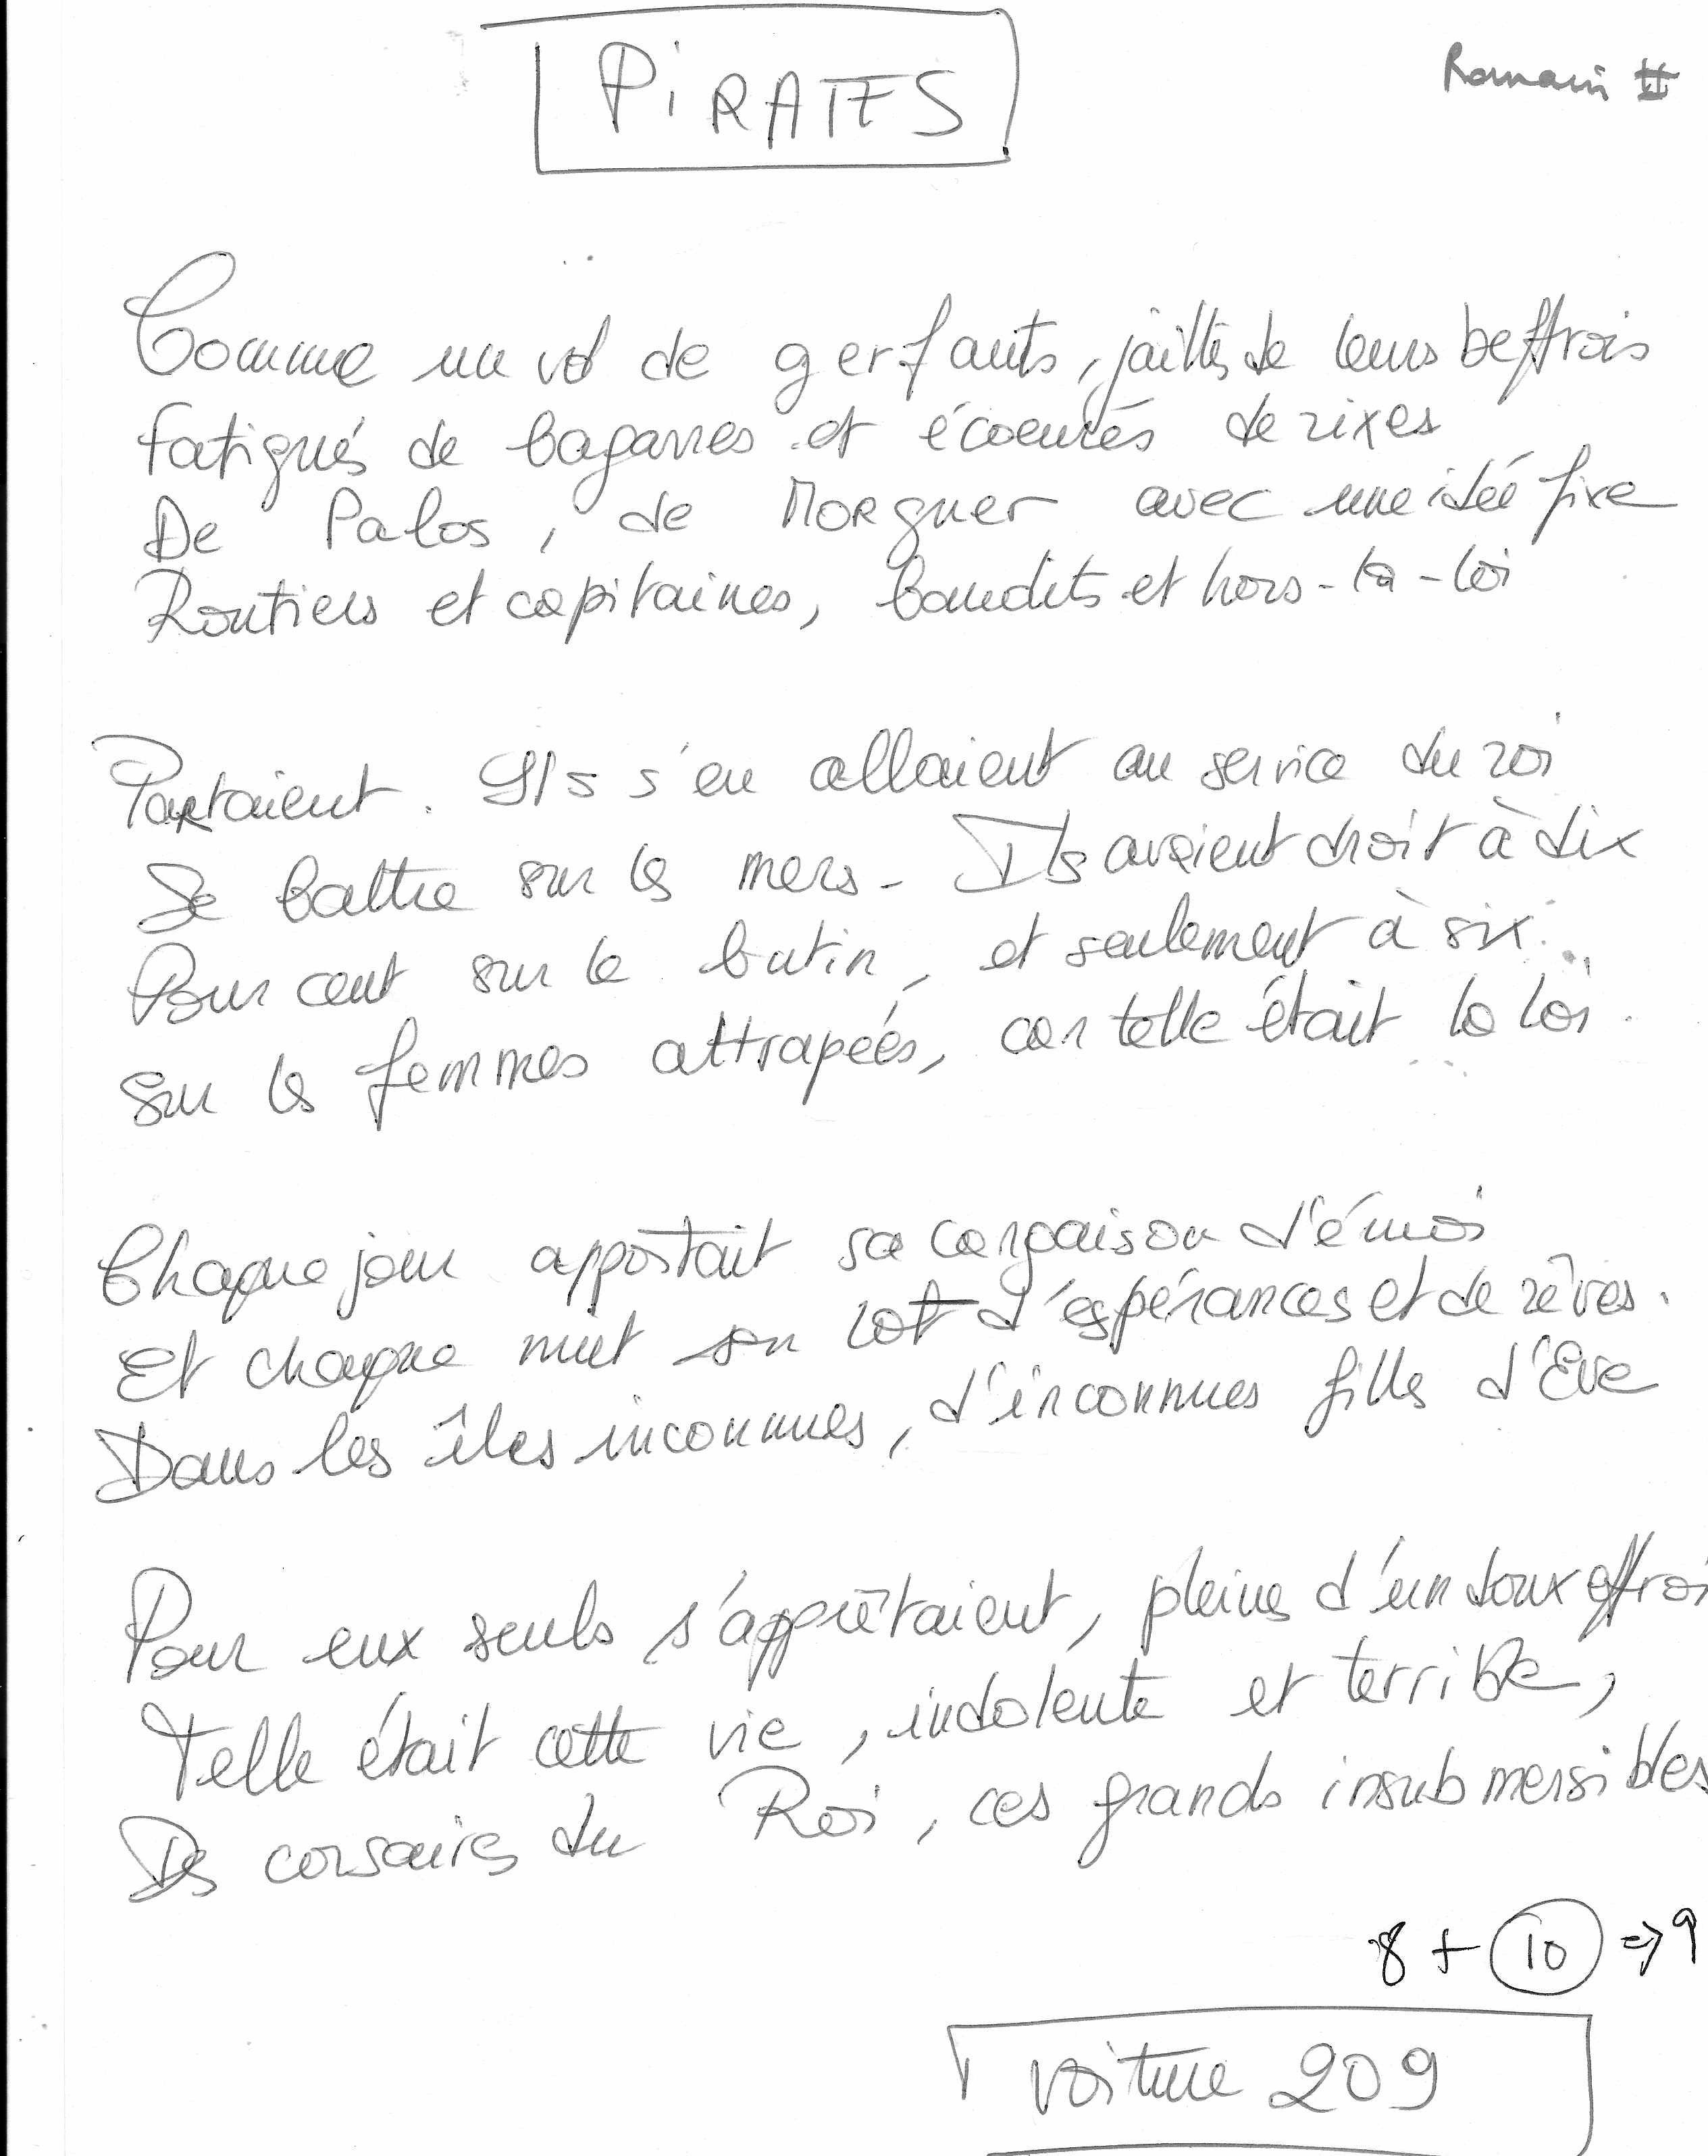 PiRATES
Romain II
Comme un vol de gerfauts, jaillis de leurs beffrois
fatigués de bagarres et écoeurés de rixes
De Palos, de Morguer avec une idée fixe
Routiers et capitaines, bandits et hors-la-loi
Partaient. Ils s'en allaient au service du roi
Se battre sur les mers. Ils avaient droit à dix
Pour cent sur le butin, et seulement à six
Sur les femmes attrapées, car telle était la loi.
Chaque jour apportait sa cargaison d'émois
Et chaque nuit son lot d'espérances et de rêves.
Dans les îles inconnues, d'inconnues filles d'Eve
Pour eux seuls s'apprêtaient, pleines d'un doux effroi
Telle était cette vie, indolente et terrible,
Des corsaires du Roi, ces grands insubmersibles
8 + 10 => 9
voiture 209